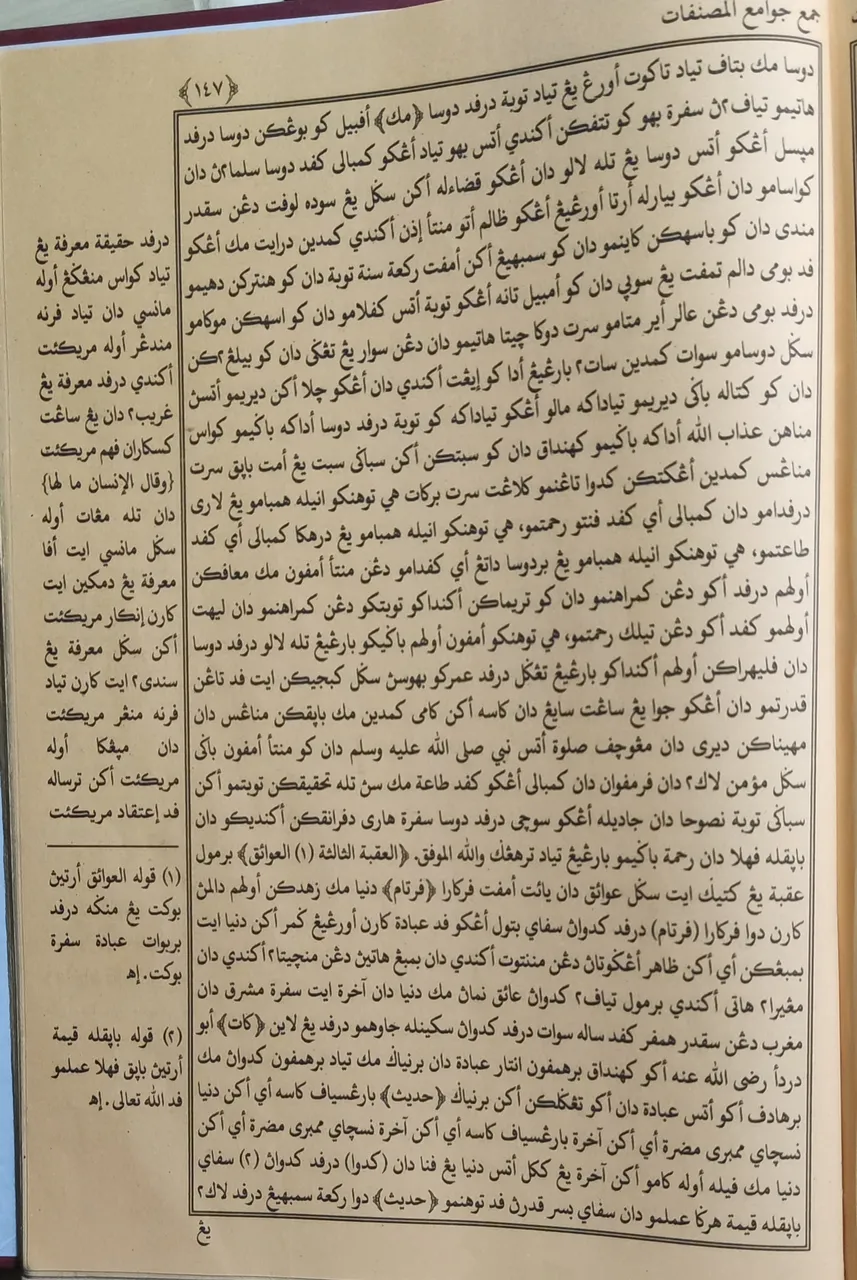 جمع جوامع المصنفات
﴿١٤٧﴾
دوسا مك بتاف تياد تاكوت أورڠ يڠ تياد توبة درفد دوسا ﴿مك﴾ أفبيل كو بوڠكن دوسا درفد
هاتيمو تياف٢ن سفرة بهو كو تتفكن أكندي أتس بهو تياد أڠكو كمبالى كفد دوسا سلما٢ن دان
ميسل أڠكو أتس دوسا يڠ تله لالو دان أڠكو قضاءله أكن سكل يڠ سوده لوفت دڠن سقدر
كواسامو دان أڠكو بيارله أرتا أورڠيڠ أڠكو ظالم أتو منتأ إذن أكندي كمدين درايت مك أڠكو
مندى دان كو باسهكن كاينمو دان كو سمبهيڠ أكن أمفت ركعة سنة توبة دان كو هنتركن دهيمو
فد بومى دالم تمفت يڠ سوڽي دان كو أمبيل تانه أڠكو توبة أتس كفلامو دان كو اسهكن موكامو
درفد بومى دڠن عالر أير متامو سرت دوكا چيتا هاتيمو دان دڠن سوار يڠ تڠكى دان كو بيلڠ٢كن
سكل دوسامو سوات كمدين سات٢ بارڠيڠ أدا كو إيڠت أكندي دان أڠكو چلا أكن ديريمو أتسن
دان كو كتاله باكى ديريمو تياداكه مالو أڠكو تياداكه كو توبة درفد دوسا أداكه باكيمو كواس
مناهن عذاب الله أداكه باكيمو كهنداق دان كو سبتكن أكن سباكى سبت يڠ أمت باڽق سرت
مناڠس كمدين أڠكتكن كدوا تاڠنمو كلاڠت سرت بركات هي توهنكو انيله همبامو يڠ لارى
درفدامو دان كمبالى أي كفد فنتو رحمتمو، هي توهنكو انيله همبامو يڠ درهكا كمبالى أي كفد
طاعتمو، هي توهنكو انيله همبامو يڠ بردوسا داتڠ أي كفدامو دڠن منتأ أمفون مك معافكن
أولهم درفد أكو دڠن كمراهنمو دان كو تريماكن أكنداكو توبتكو دڠن كمراهنمو دان ليهت
أولهمو كفد أكو دڠن تيلك رحمتمو، هي توهنكو أمفون أولهم باكيكو بارڠيڠ تله لالو درفد دوسا
دان فليهراكن أولهم أكنداكو بارڠيڠ تڠكل درفد عمركو بهوسن سكل كبجيكن ايت فد تاڠن
قدرتمو دان أڠكو جوا يڠ ساڠت سايڠ دان كاسه أكن كامى كمدين مك باڽقكن مناڠس دان
مهيناكن ديرى دان مڠوچف صلوة أتس نبي صلى الله عليه وسلم دان كو منتأ أمفون باكى
سكل مؤمن لاك٢ دان فرمفوان دان كمبالى أڠكو كفد طاعة مك سن تله تحقيقكن توبتمو أكن
سباكى توبة نصوحا دان جاديله أڠكو سوچى درفد دوسا سفرة هارى دفرانقكن أكنديكو دان
باڽقله فهلا دان رحمة باكيمو بارڠيڠ تياد ترهڠك والله الموفق. ﴿العقبة الثالثة (١) العوائق﴾ برمول
عقبة يڠ كتيڬ ايت سكل عوائق دان يائت أمفت فركارا ﴿فرتام﴾ دنيا مك زهدكن أولهم دالمن
كارن دوا فركارا (فرتام) درفد كدوان سفاي بتول أڠكو فد عبادة كارن أورڠيڠ كمر أكن دنيا ايت
بمبڠكن أي أكن ظاهر أڠكوتان دڠن مننتوت أكندي دان بمبڠ هاتين دڠن منچيتا٢ أكندي دان
مڠيرا٢ هاتى أكندي برمول تياف٢ كدوان عائق نمان مك دنيا دان آخرة ايت سفرة مشرق دان
مغرب دڠن سقدر همفر كفد ساله سوات درفد كدوان سكينله جاوهمو درفد يڠ لاين ﴿كات﴾ أبو
دردأ رضى الله عنه أكو كهنداق برهمفون انتار عبادة دان برنياڬ مك تياد برهمفون كدوان مك
برهادف أكو أتس عبادة دان أكو تڠكلكن أكن برنياڬ ﴿حديث﴾ بارڠسياف كاسه أي أكن دنيا
نسچاي ممبرى مضرة أي أكن آخرة بارڠسياف كاسه أي أكن آخرة نسچاي ممبرى مضرة أي أكن
دنيا مك فيله أوله كامو أكن آخرة يڠ ككل أتس دنيا يڠ فنا دان (كدوا) درفد كدوان (٢) سفاي
باڽقله قيمة هركا عملمو دان سفاي بسر قدرن فد توهنمو ﴿حديث﴾ دوا ركعة سمبهيڠ درفد لاك٢
يڠ
درفد حقيقة معرفة يڠ
تياد كواس منڠكڠ أوله
مانسي دان تياد فرنه
مندڠر أوله مريكئت
أكندي درفد معرفة يڠ
غريب٢ دان يڠ ساڠت
كسكاران فهم مريكئت
{وقال الإنسان ما لها}
دان تله مڠات أوله
سكل مانسي ايت أفا
معرفة يڠ دمكين ايت
كارن إنكار مريكئت
أكن سكل معرفة يڠ
سندى٢ ايت كارن تياد
فرنه منڠر مريكئت
دان ميڠكا أوله
مريكئت أكن ترساله
فد إعتقاد مريكئت
(١) قوله العوائق أرتين
بوكت يڠ منكه درفد
بربوات عبادة سفرة
بوكت. إﻫ
(٢) قوله باڽقله قيمة
أرتين باڽق فهلا عملمو
فد الله تعالى. إﻫ